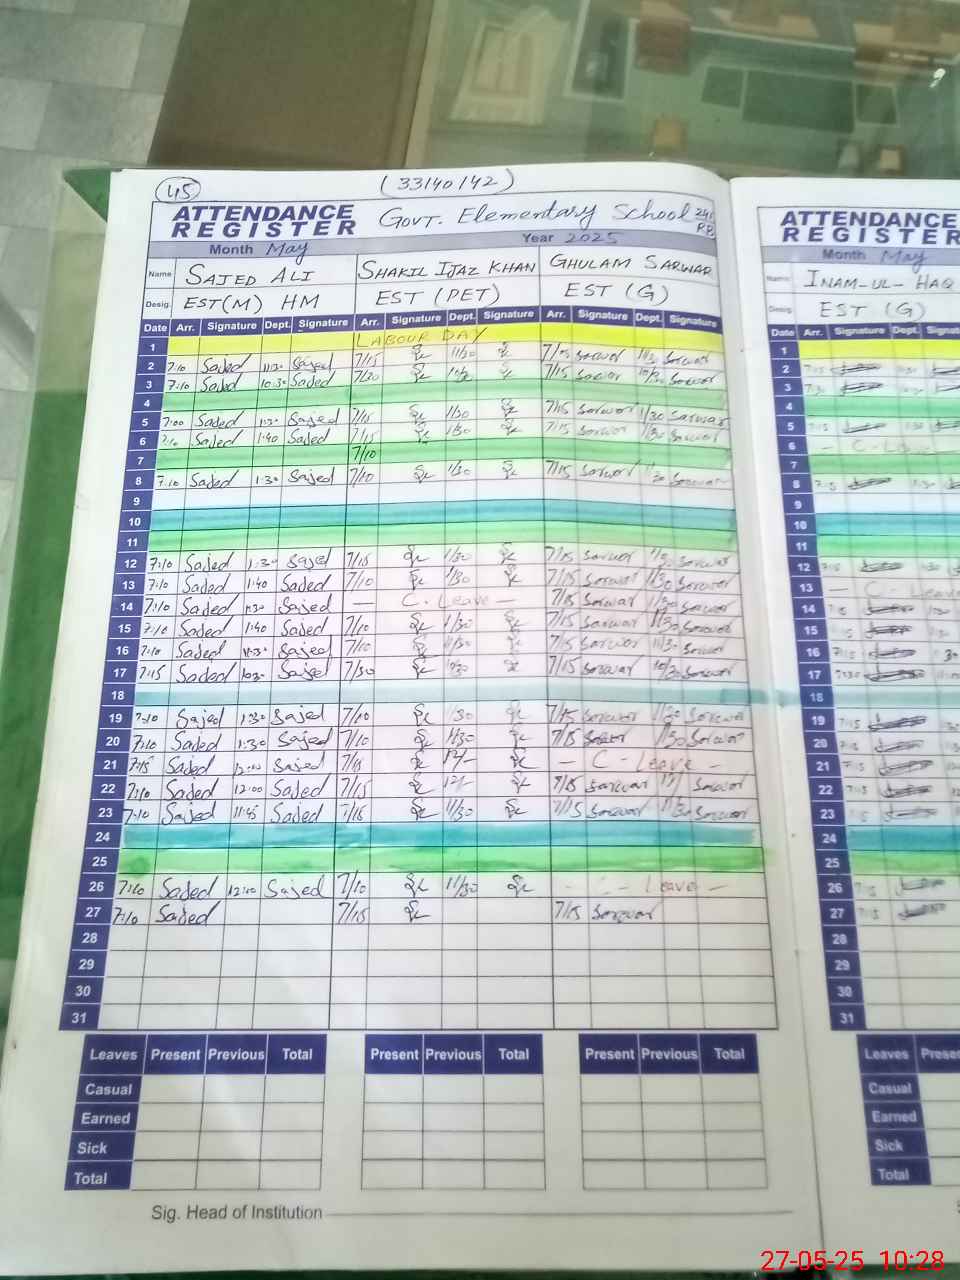 45
(33140142)
ATTENDANCE REGISTER Govt. Elementary School 241 RB
Month May Year 2025
Name SAJED ALI SHAKIL IJAZ KHAN GHULAM SARWAR
Desig. EST(M) HM EST (PET) EST (G)
Date Arr. Signature Dept. Signature Arr. Signature Dept. Signature Arr. Signature Dept. Signature
1 LABOUR DAY
2 7:10 Sajed 11:30 Sajed 7/15 11/30 Sarwar Sarwar
3 7:10 Sajed 10:30 Sajed 7/30 7/15 Sarwar 10/30 Sarwar
4
5 7:00 Sajed 1:30 Sajed 7/15 1/30 7/15 Sarwar 1/30 Sarwar
6 7:10 Sajed 1:40 Sajed 7/15 1/30 7/15 Sarwar 1/30 Sarwar
7 7/10
8 7:10 Sajed 1:30 Sajed 7/10 1/30 7/15 Sarwar Sarwar
9
10
11
12 7:10 Sajed 1:30 Sajed 7/15 1/30 7/15 Sarwar Sarwar
13 7:10 Sajed 1:40 Sajed 7/10 1/30 7/15 Sarwar 1/30 Sarwar
14 7:10 Sajed 1:30 Sajed — C - Leave — 7/15 Sarwar 1/30 Sarwar
15 7:10 Sajed 1:40 Sajed 7/10 1/30 7/15 Sarwar 1/30 Sarwar
16 7:10 Sajed 11:30 Sajed 7/10 11/30 7/15 Sarwar 11/30 Sarwar
17 7:15 Sajed 10:30 Sajed 7/30 10/30 7/15 Sarwar 10/30 Sarwar
18
19 7:10 Sajed 1:30 Sajed 7/10 1/30 7/15 Sarwar 1/30 Sarwar
20 7:10 Sajed 1:30 Sajed 7/10 1/30 7/15 Sarwar 1/30 Sarwar
21 7:15 Sajed 12:00 Sajed 7/15 12/- — C - Leave -
22 7:10 Sajed 12:00 Sajed 7/15 12/- 7/15 Sarwar Sarwar
23 7:10 Sajed 11:45 Sajed 7/15 11/30 7/15 Sarwar 11/30 Sarwar
24
25
26 7:10 Sajed 12:00 Sajed 7/10 11/30 - C - Leave -
27 7:10 Sajed 7/15 7/15 Sarwar
28
29
30
31
Leaves Present Previous Total Present Previous Total Present Previous Total
Casual
Earned
Sick
Total
Sig. Head of Institution
ATTENDANCE
REGISTER
Month May
Name INAM-UL-HAQ
Desig. EST (G)
Date Arr. Signature Dept.
1
2 7:15
3 7:30
4
5 7:15
6 — C-Leave
7
8 7:15
9
10
11
12 7:15
13 — C-Leave
14 7:15
15
16 7:15
17 7:30
18
19 7:15
20 7:15
21 7:15
22 7:15
23 7:15
24
25
26 7:15
27 7:15
28
29
30
31
Leaves
Casual
Earned
Sick
Total
27-05-25 10:28